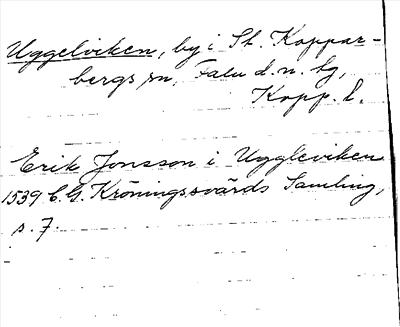 Uggelviken, by i St. Koppar-
bergs sn, Falu d.n. hg,
Kopp. l.
Erik Jonsson i Uggleviken
1539 C.G. Kröningssvärds Samling,
s. 7.